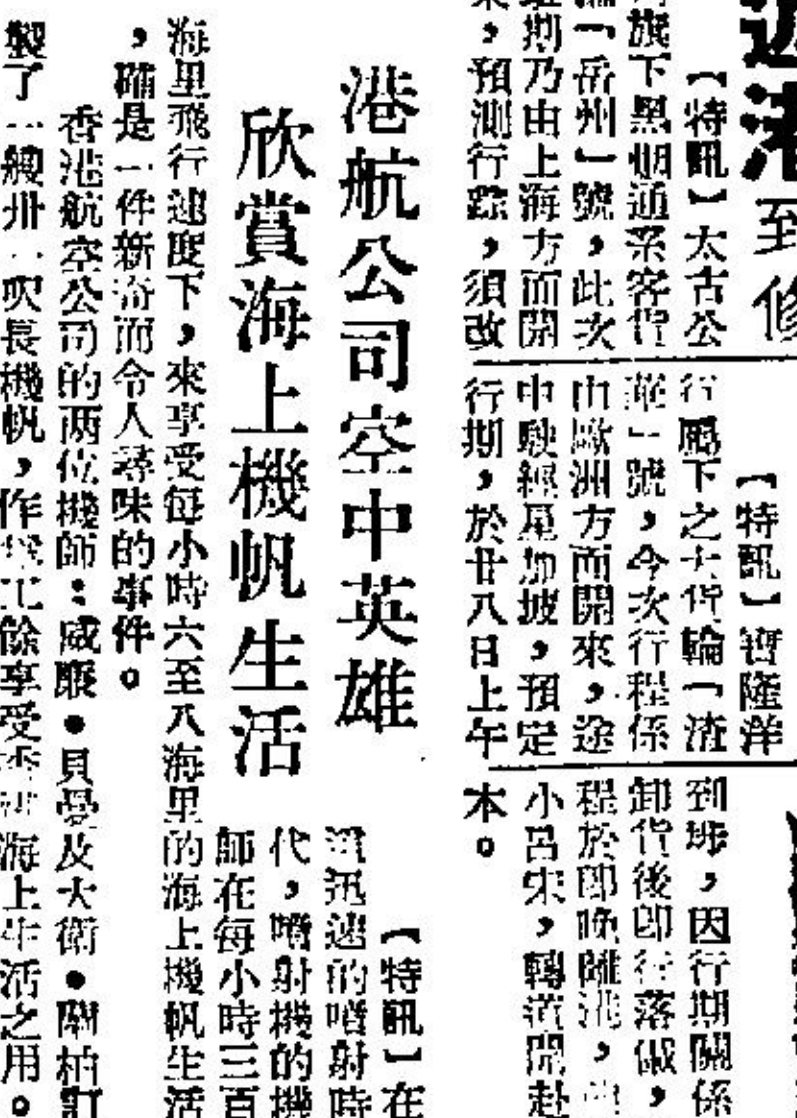 港到修
【特訊】太古公
旗下黑烟通系客貨
「岳州」號，此次
期乃由上海方面開
，預測行踪，須改
【特訊】寶隆洋
行屬下之大貨輪「渣
華」號，今次行程係
由歐洲方面開來，途
中駛經星加坡，預定
行期，於廿八日上午
到埗，因行期關係
卸貨後即行落儎，
程於即晚離港，
小呂宋，轉道開赴
本。
港航公司空中英雄
欣賞海上機帆生活
【特訊】在
迅速的噴射時
代，噴射機的機
師在每小時三百
海里飛行速度下，來享受每小時六至八海里的海上機帆生活
，確是一件新奇而令人尋味的事件。
香港航空公司的兩位機師：威廉•貝曼及大衛•關柏訂
製了一艘卅一呎長機帆，作為工餘享受香港海上生活之用。